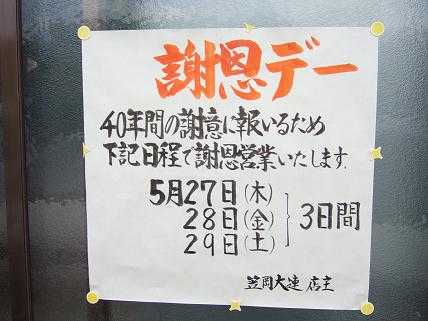 謝恩デー
40年間の謝意に報いるため
下記日程で謝恩営業いたします.
5月27日(木)
28日(金) 3日間
29日(土)
笠岡大連 店主